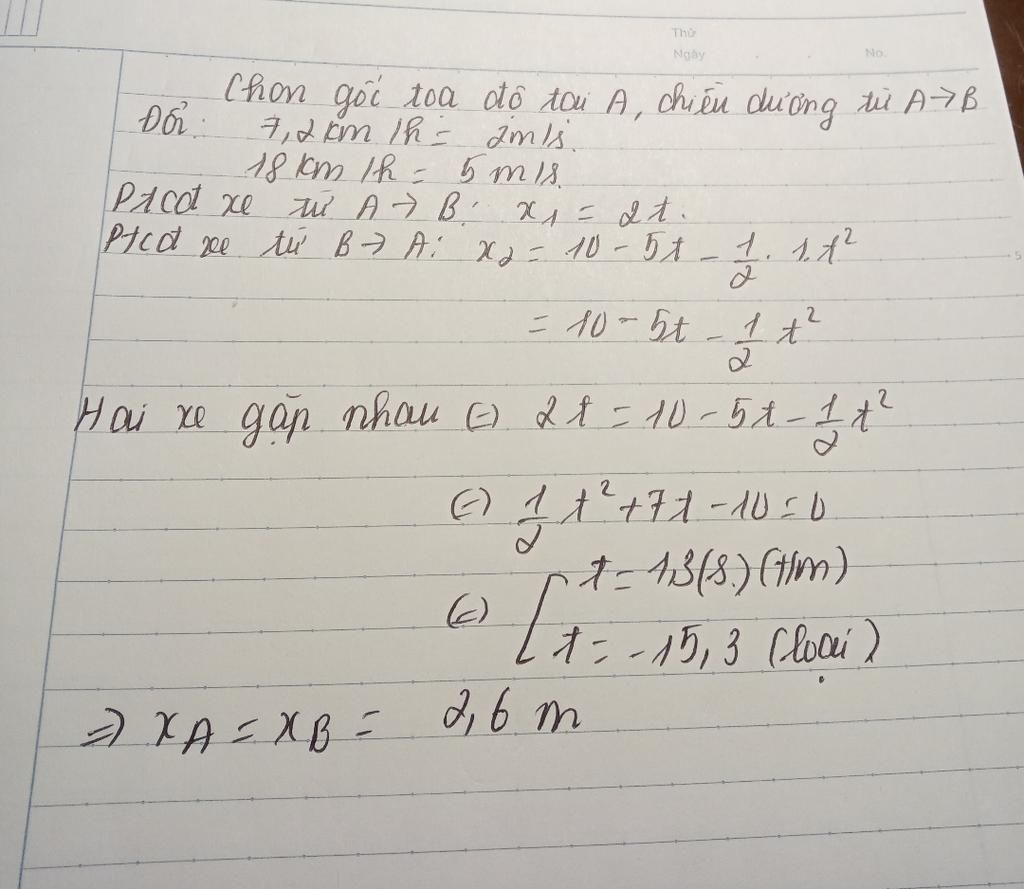 Thứ
Ngày No.
Chọn gốc toạ độ tại A, chiều dương từ A→B
Đổi: 7,2 km/h = 2m/s.
18 km/h = 5 m/s.
Ptcđ xe từ A → B: x₁ = 2t.
Ptcđ xe từ B → A: x₂ = 10 - 5t - 1/2 . 1.t²
= 10 - 5t - 1/2 t²
Hai xe gặp nhau (=) 2t = 10 - 5t - 1/2 t²
(=) 1/2 t² + 7t - 10 = 0
(=) [ t = 1,3(s.) (t/m)
t = -15,3 (loại)
=> x_A = x_B = 2,6 m